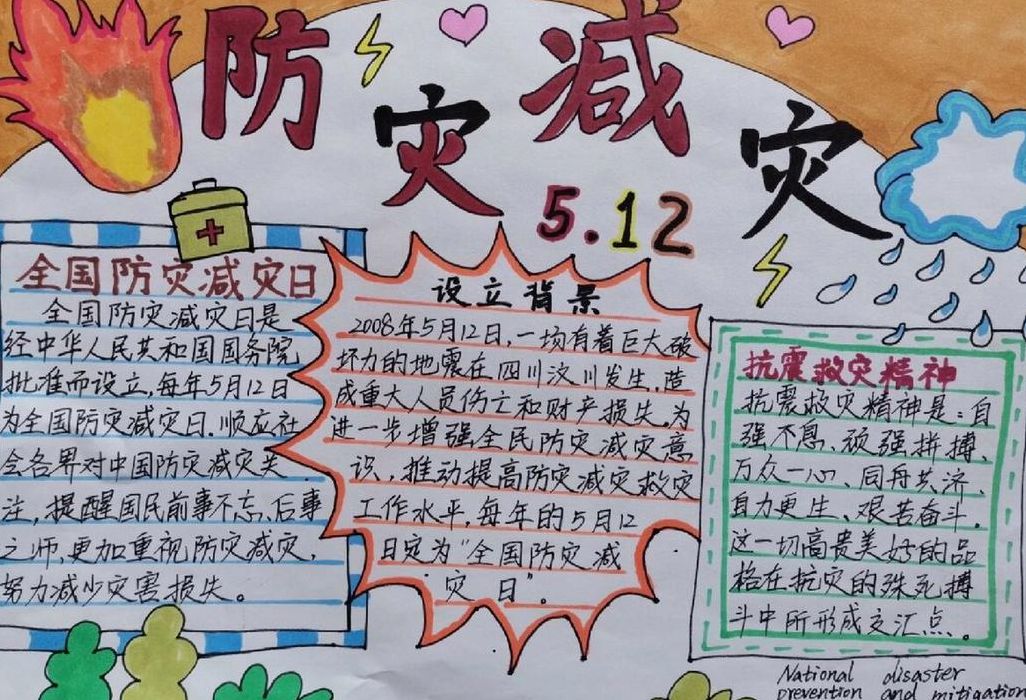 防灾减灾
5.12
全国防灾减灾日
全国防灾减灾日是
经中华人民共和国国务院
批准而设立,每年5月12日
为全国防灾减灾日.顺应社
会各界对中国防灾减灾关
注,提醒国民前事不忘、后事
之师,更加重视防灾减灾,
努力减少灾害损失。
设立背景
2008年5月12日,一场有着巨大破
坏力的地震在四川汶川发生,造
成重大人员伤亡和财产损失,为
进一步增强全民防灾减灾意
识、推动提高防灾减灾救灾
工作水平,每年的5月12
日定为“全国防灾减
灾日”。
抗震救灾精神
抗震救灾精神是:自
强不息、顽强拼搏、
万众一心、同舟共济、
自力更生、艰苦奋斗.
这一切高贵美好的品
格在抗灾的殊死搏
斗中所形成交汇点。
National disaster
prevention and mitigation